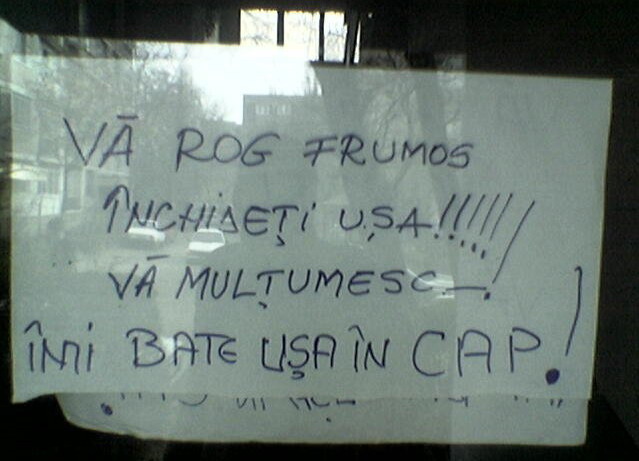 VĂ ROG FRUMOS
ÎNCHIDEȚI UȘA!!!!!!!
VĂ MULȚUMESC__.
ÎMI BATE UȘA ÎN CAP.!